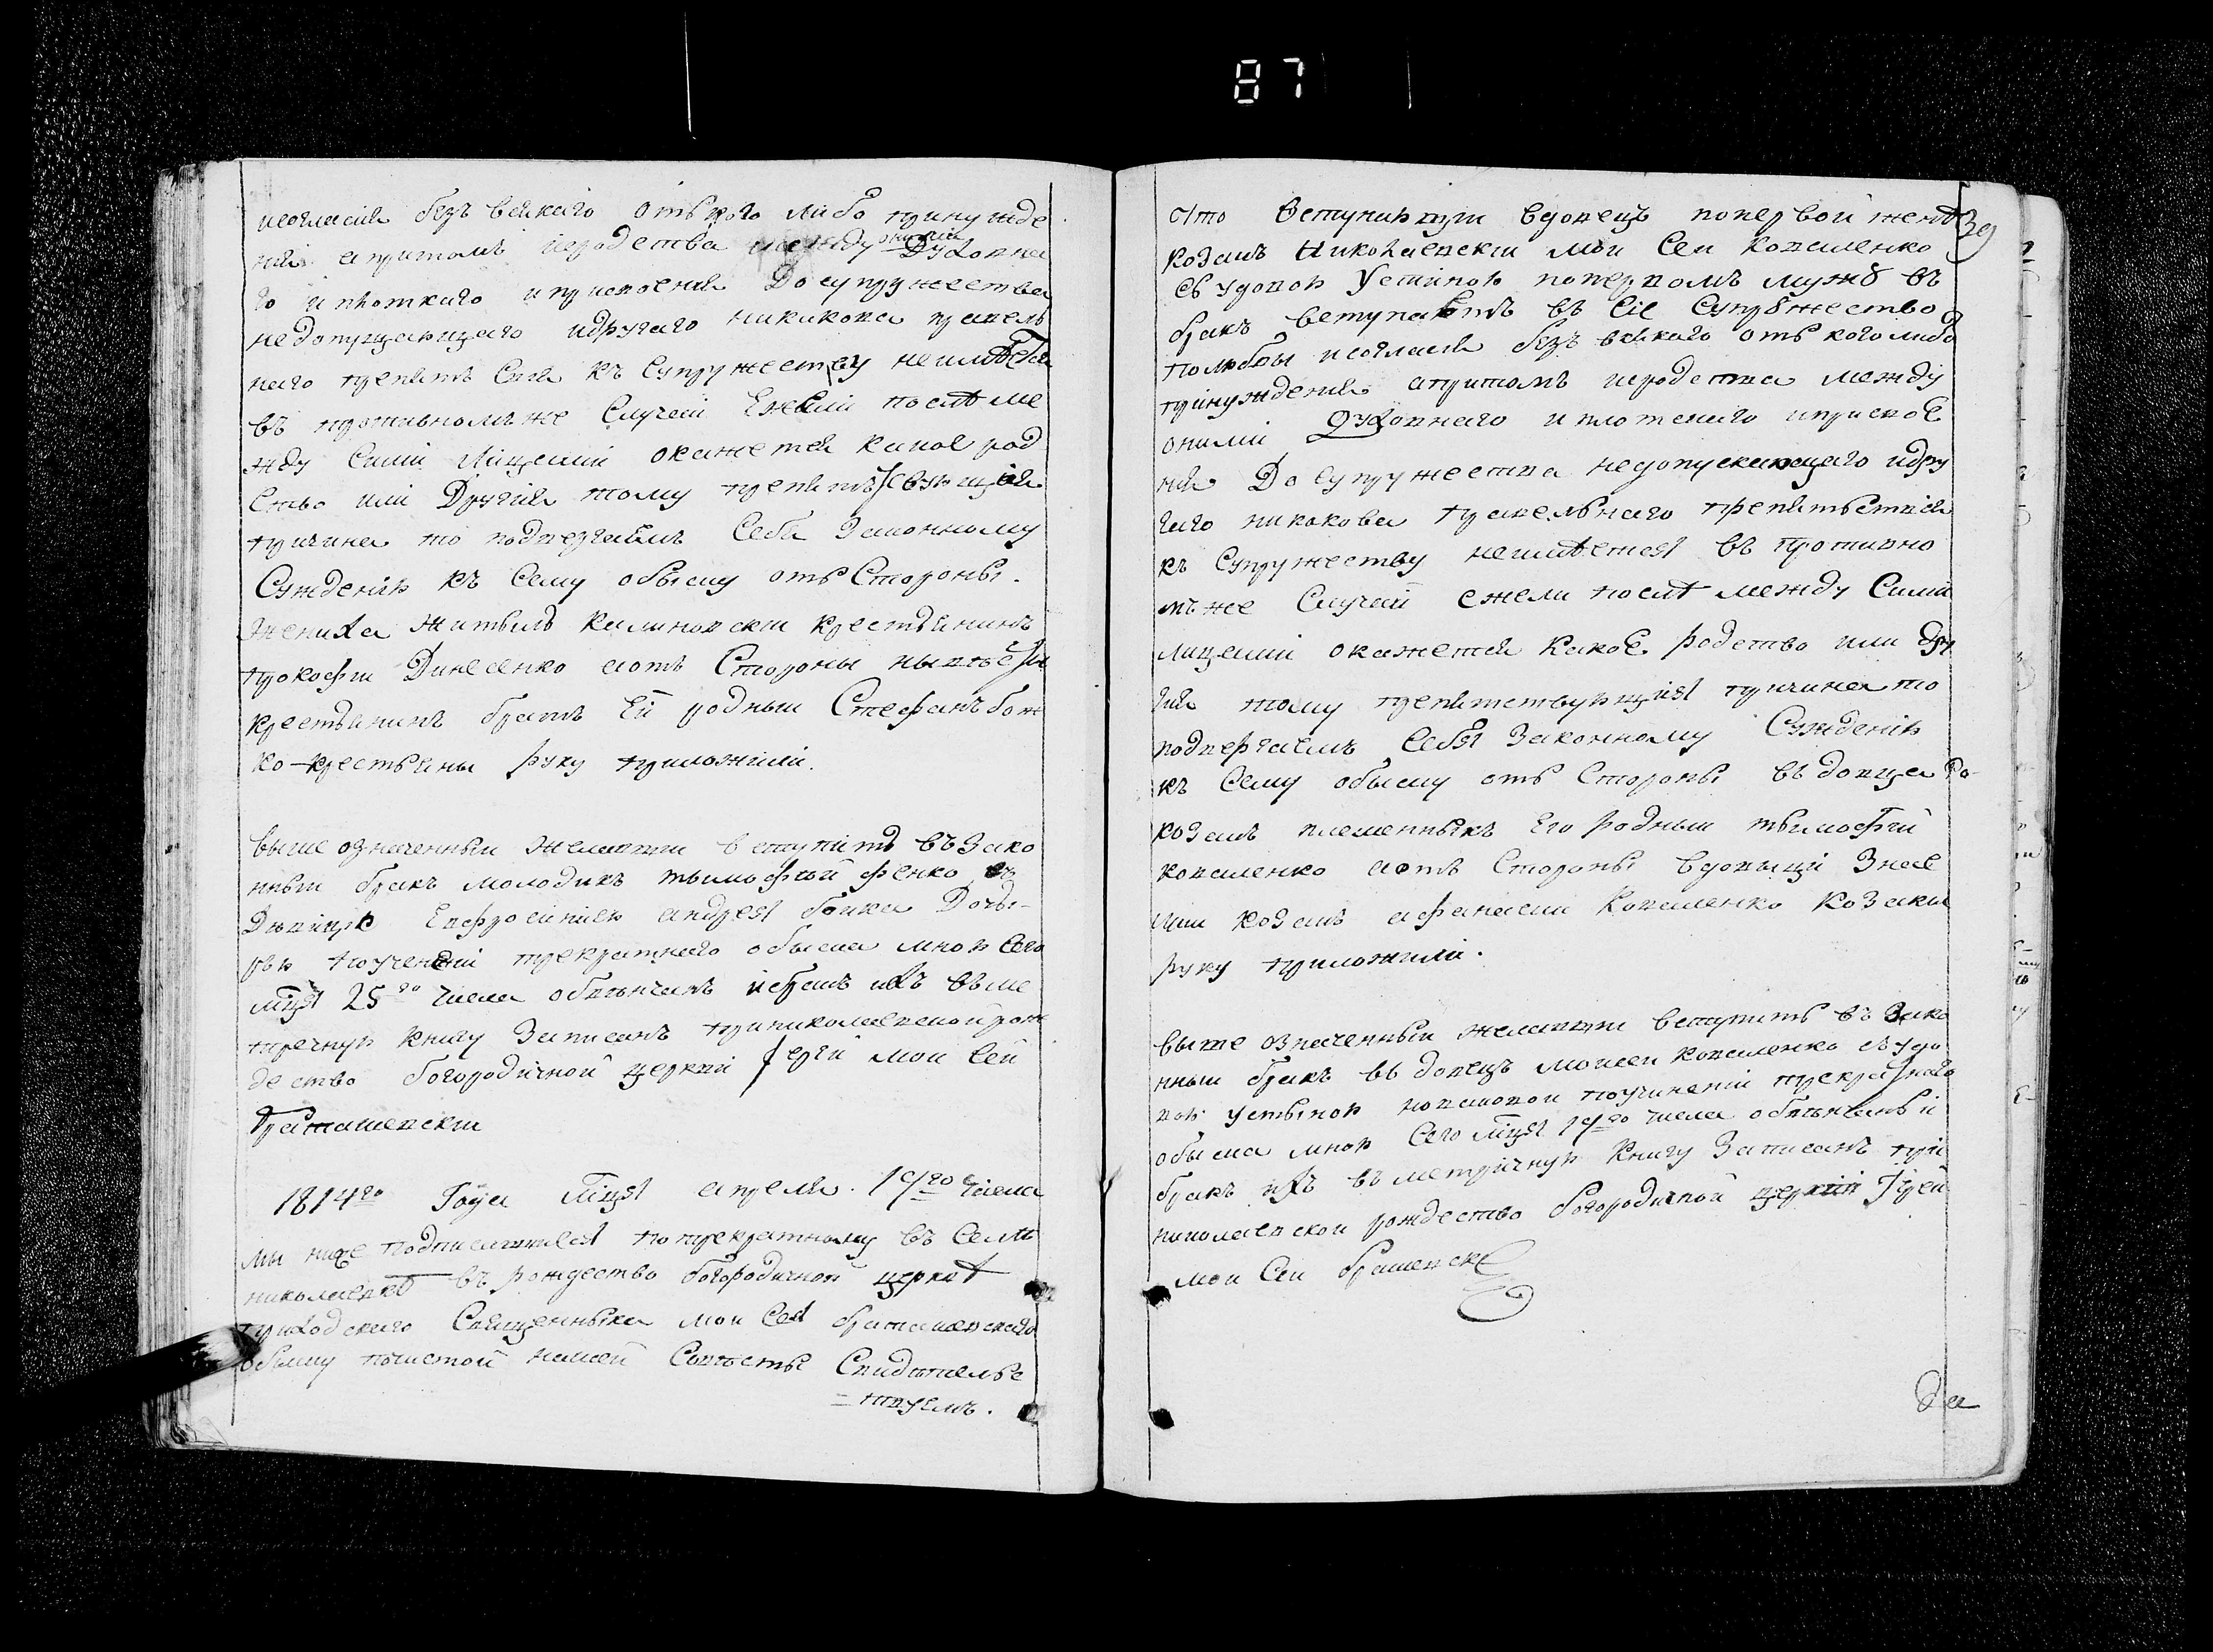 87
исогласия безъ всякаго отъ кого либо принужде
ния апритомъ иеродства между оними Духовна
го иплоткаго иприсвоения до супружества
недопущающаго идругаго никакова правель
наго препятъ Свия къ Супружеству неимѣется
въ противномъже Случаи Ежели послѣ ме
жду Сими лицами окажется какое род
Ство или Другия тому препятъствующия
причина то подвергаемъ Себя Законному
Сужденію къ Сему обыску отъ Стороны
жениха житель калиновски крестянинъ
прокофи Динесенко аотъ Стороны
крестянинъ братъ Ей родныи Стефанъ бож
ко крестьяны руку приложили.
выше означенныи желающи вступитъ въ Зако
нныи бракъ молодикъ тымофѣй фенко съ
Дивицею Евфросиніею андрея бойка Дочь-
рю поучинении трекратнаго обыска мною Сего
мця 25го числа обвѣнчанъ ибракъ ихъ въме
тричную книгу Записанъ приниколаевской рож
дество богородичной церкви Іерей мои Сей
Браташевски
1814го Года мця апреля. 19го числа
мы ниже подписавшиеся по трекратному въ Селѣ
николаевкѣ въ рождество богородичной церквѣ
приходскаго Священныка мои Сея браташевскаго
обыску почистой нашей Совѣсти Свидѣтельс
=твуемъ.
39
что Вступившии вдовецъ попервои женѣ
козакъ Николаевски мои Сеи коваленко
съ удовою Устіною попервомъ мужѣ въ
бракъ вступаютъ въ Сіе Супружество
полюбви исогласия безъ всякаго отъ кого либо
принуждения апритомъ иеродства между
оними Духовнаго иплотскаго иприсвое
ния До супружества недопускающаго идру
гаго никакова правельнаго препятьствия
къ Супружеству неимѣется въ противно
мъже Случаи ежели послѣ между Сими
лицами окажется какое родство или дру
гия тому препятствующия причина то
подвергаемъ Себя Законному Сужденію
къ Сему обыску отъ Стороны въдовца Ко-
козакъ племенныкъ Его родныи тымофѣй
коваленко аотъ Стороны вдовыци Знае
мии козакъ афанасии коваленко козаки
руку приложили.
выше означенныи желающи вступить въ Зако
нныи бракъ въдовецъ моисеи коваленко съ удо
вою устыною поучинении трекратнаго
обыска мною Сего мця 19го числа обвѣнчанъ и
бракъ ихъ въ метричную книгу Записанъ при
николаевскои рождество богородичной церкви Іерей
мои Сеи браташевски
да